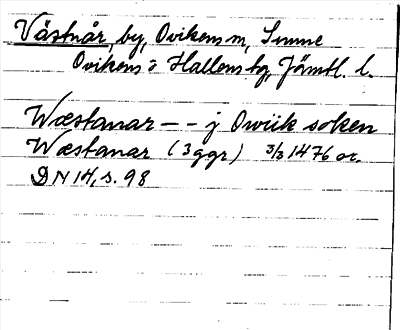 Västnår, by, Ovikens sn, Sunne
Ovikens o Hallens tg, Jämtl. l.
Wæstanar -- j Owiik soken
Wæstanar (3 ggr) 3/3 1476 or.
DN 14, s. 98